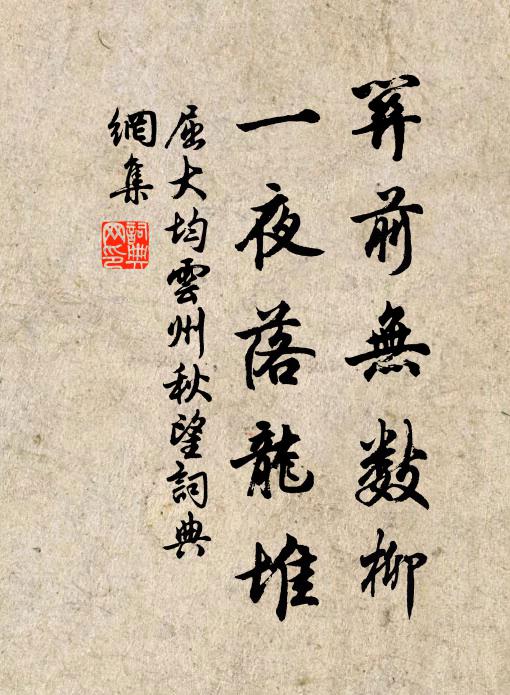 關前無數柳
一夜落龍堆
屈大均雲州秋望詞典
網集
詞典
网印